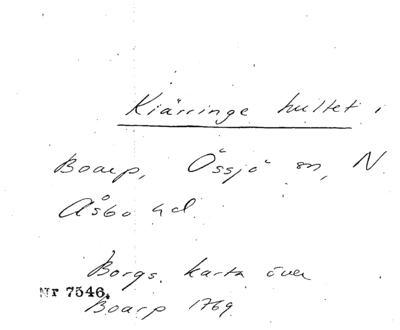 Kiärringe hultet i
Boarp, Össjö sn, N
Åsbo hd.
Borgs. karta över
Nr 7546.
Boarp 1769